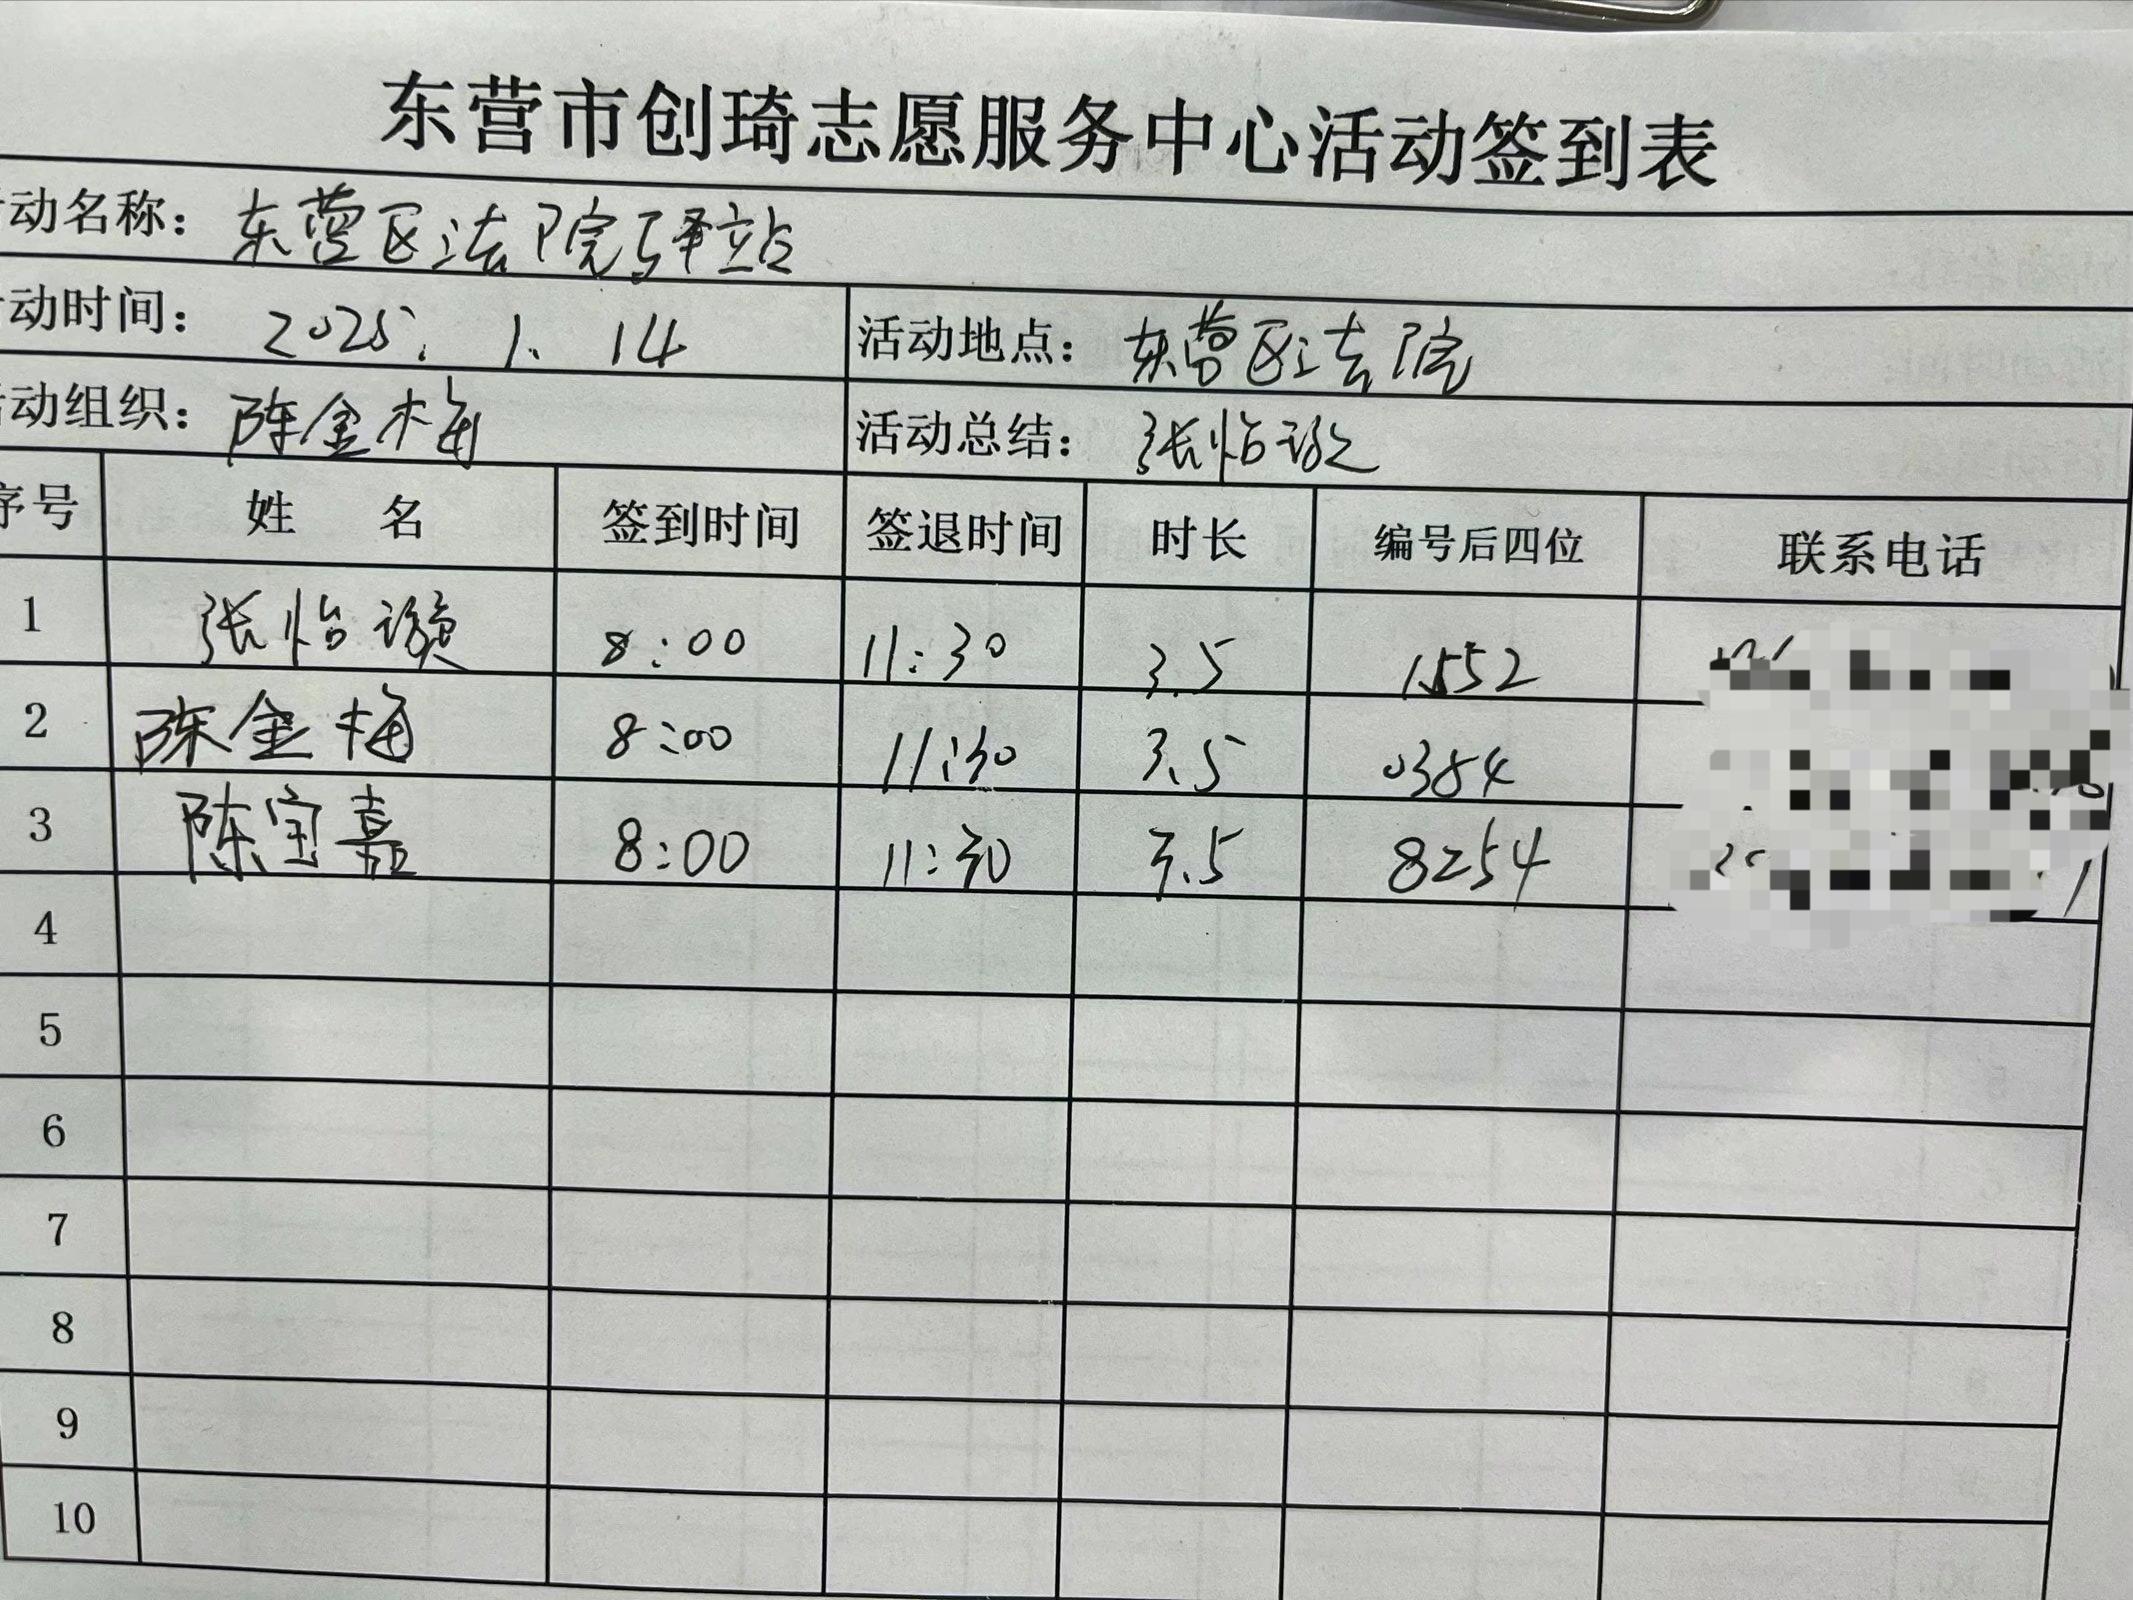 东营市创琦志愿服务中心活动签到表
动名称：东营区法院驿站
动时间：2025.1.14 活动地点：东营区法院
动组织：陈金梅 活动总结：张怡
序号 姓 名 签到时间 签退时间 时长 编号后四位 联系电话
1 张怡 8:00 11:30 3.5 1552
2 陈金梅 8:00 11:30 3.5 0384
3 陈宝嘉 8:00 11:30 3.5 8254
4
5
6
7
8
9
10